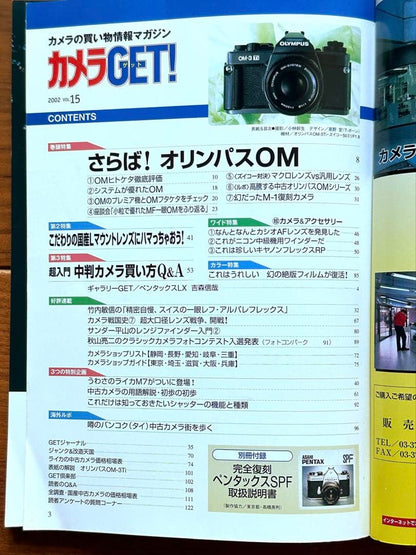 カメラの買い物情報マガジン
カメラGET!
ゲット
2002 VOL.15
CONTENTS
OLYMPUS
OM-3Ti
巻頭特集
さらば！オリンパスOM 8
①OMヒトケタ徹底評価 10
②システムが優れたOM 13
③OMのプレミア機とOMフタケタをチェック 20
④座談会「小粒で優れたMF一眼OMをふり返る」 23
⑤〈ズイコー対決〉マクロレンズvs汎用レンズ 26
⑥〈ルポ〉高騰する中古オリンパスOMシリーズ 30
⑦幻だったM-1復刻カメラ 31
第2特集
こだわりの国産Lマウントレンズにハマっちゃおう! 41
第3特集
超入門 中判カメラ買い方Q&A 53
ギャラリーGET／ペンタックスLX 吉森信哉 4
ワイド特集
㊙カメラ&アクセサリー
①なんとなんとカシオAFレンズを発見した
②これがニコン中級機用ワインダーだ
③これは珍しいキヤノンフレックスRP
カラー特集
これはうれしい 幻の絶版フィルムが復活! 85
好評連載
竹内敏信の「精密自慢、スイスの一眼レフ・アルパレフレックス」
カメラ戦国史⑦ 超大口径レンズ戦争、開戦!
サンダー平山のレンジファインダー入門②
秋山亮二のクラシックカメラフォトコンテスト入選発表（フォトコンパーク 91）
カメラショップリスト【静岡・長野・愛知・岐阜・三重】
カメラショップガイド【東京・埼玉・滋賀・大阪・兵庫】
3つの特別企画
うわさのライカM7がついに登場!
中古カメラの用語解説・初歩の初歩
これだけは知っておきたいシャッターの機能と種類
海外ルポ
噂のバンコク(タイ)中古カメラ街を歩く
GETジャーナル 35
ジャンク&改造天国 70
ライカの中古カメラ価格相場表 74
表紙の解説 オリンパスOM-3Ti
GET倶楽部
読者のQ&A
全調査・国産中古カメラの価格相場表
読者アンケートの質問コーナー 122
別冊付録
完全復刻
ペンタックスSPF
取扱説明書
ASAHI
PENTAX
SPF
3
カメラ
ご購入ご希望の
販売
TEL／03-37
FAX／03-3
インターネットで